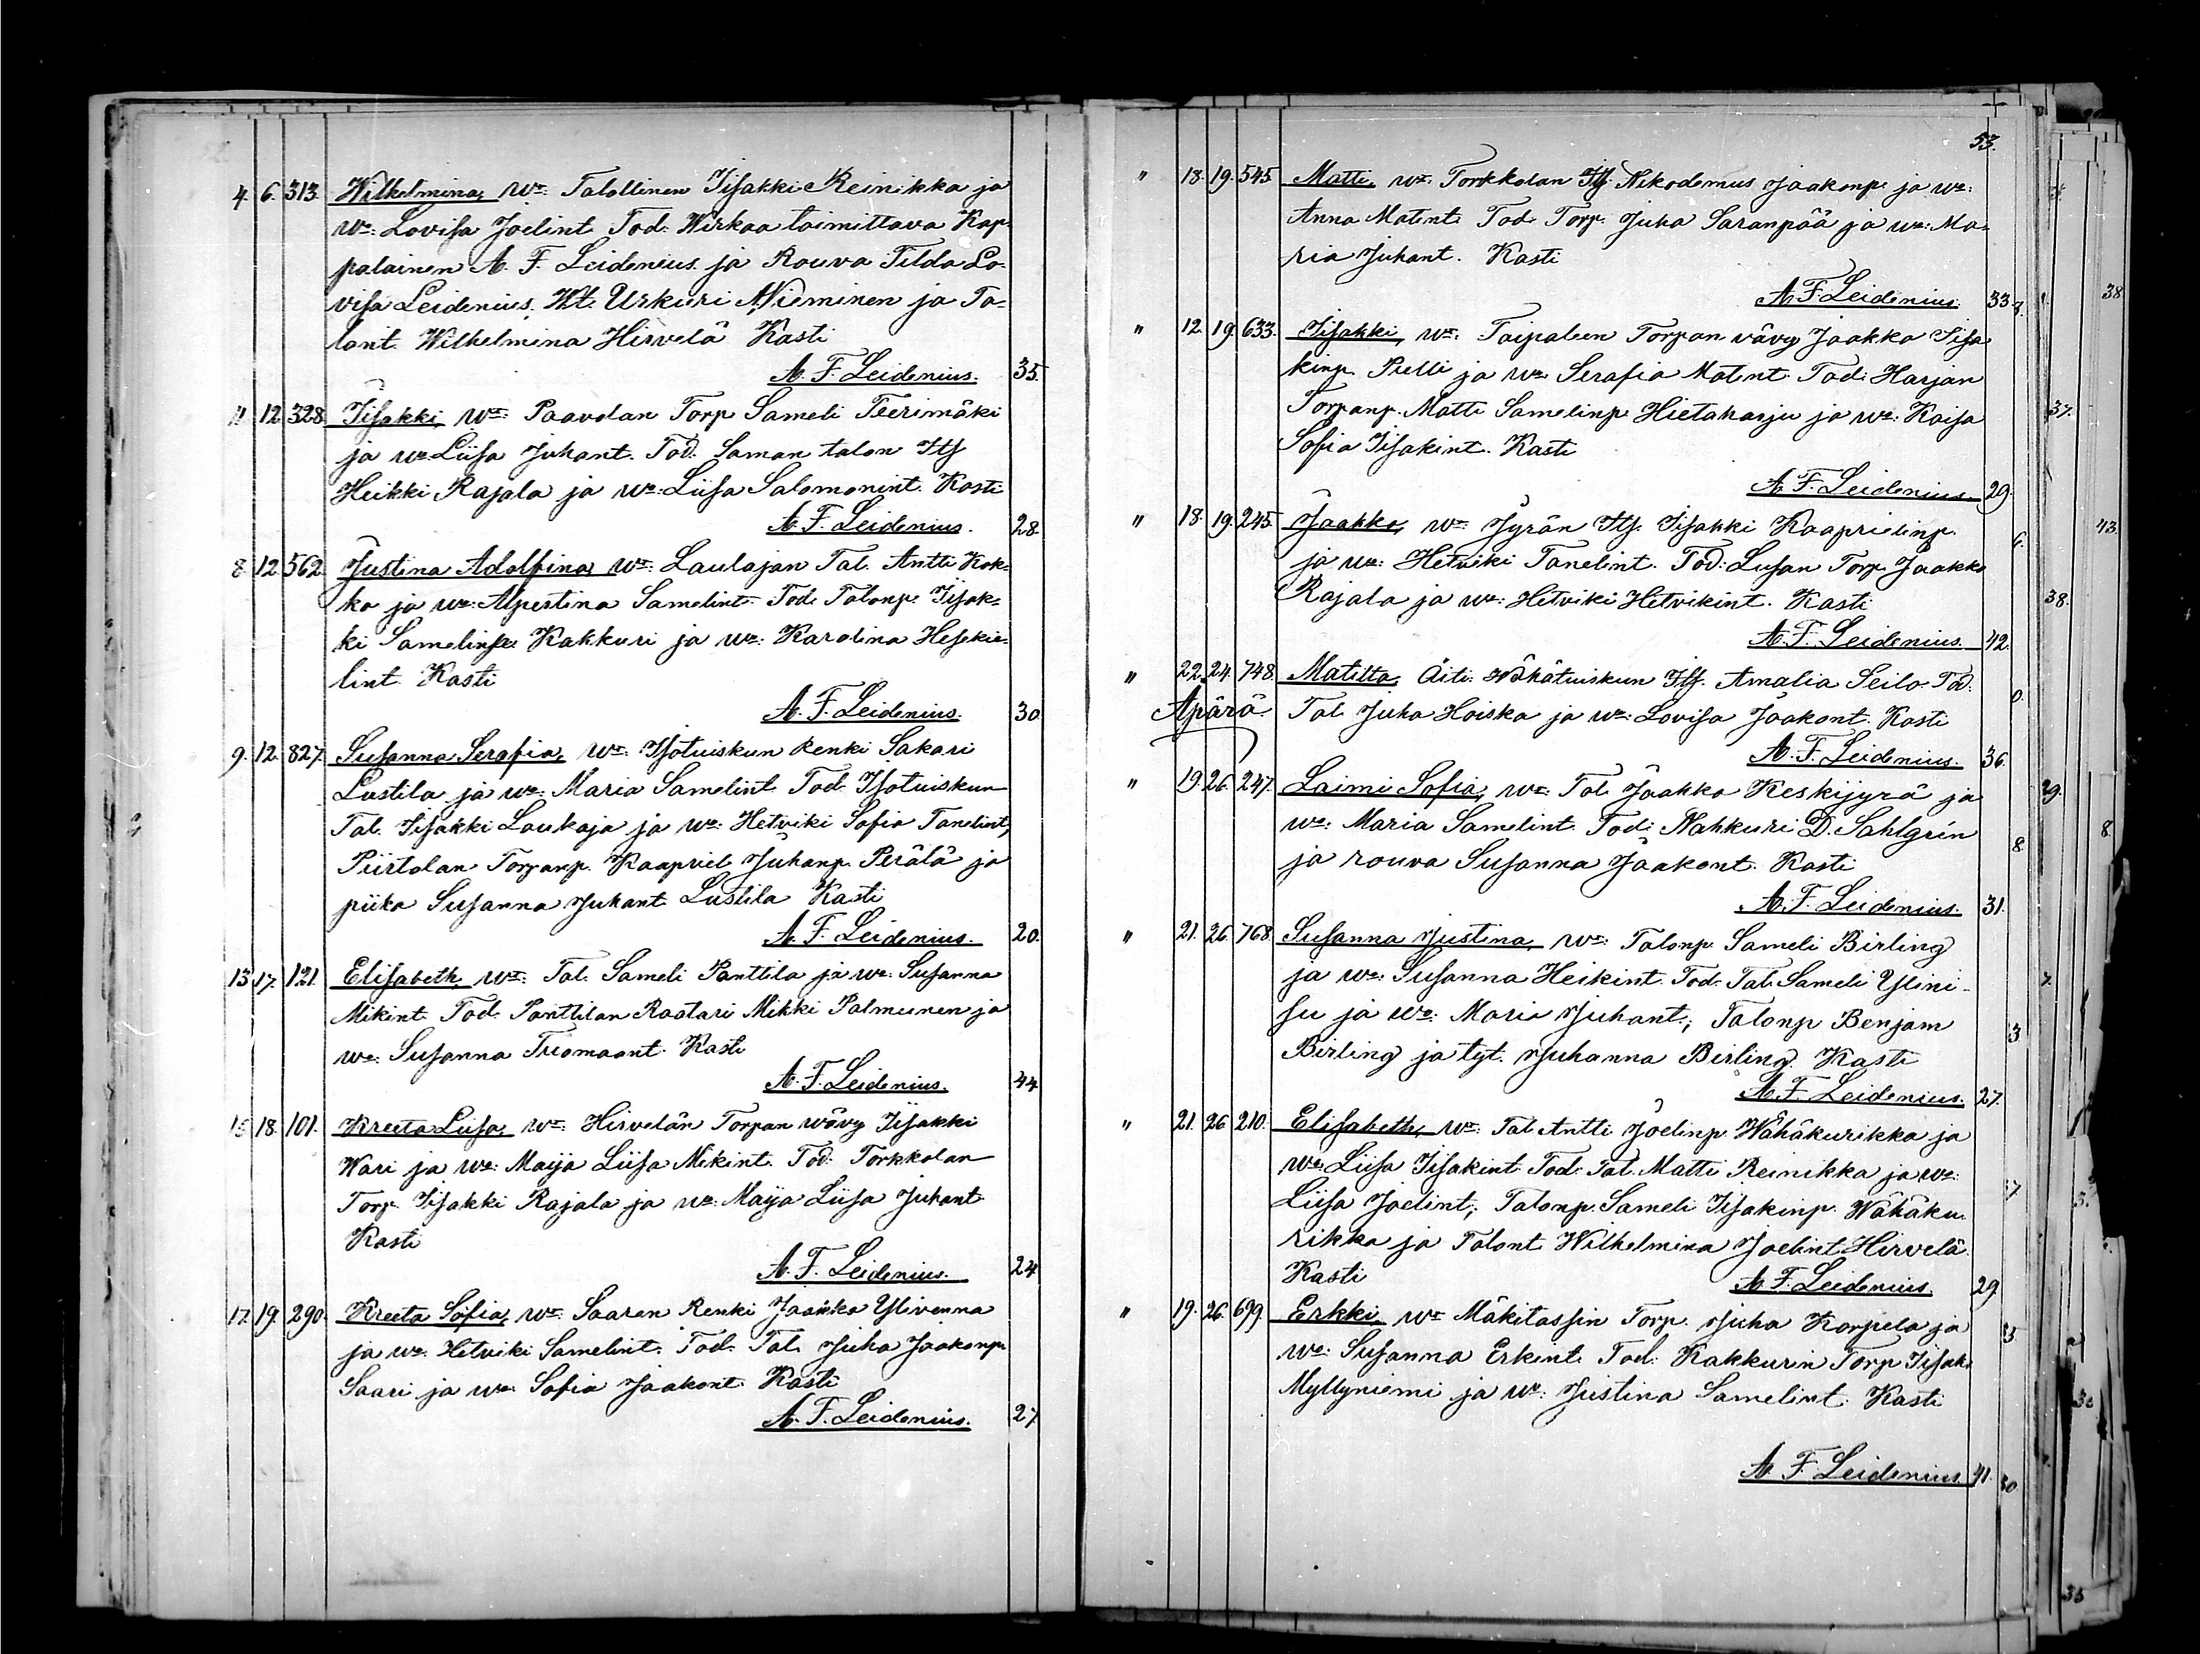 4. 6. 313. Wilhelmina, Wt: Talollinen Iisakki Reinikka ja
Wo: Lovisa Joelint. Tod: Wirkaa toimittava Kap-
palainen A. F. Leidenius ja Rouva Tilda Lo-
visa Leidenius. Kt. Urkuri A. Nieminen ja Ta-
lont. Wilhelmina Hirvelä Kasti
A. F. Leidenius. 35.
11 12 328. Iisakki, Wt: Paavolan Torp. Sameli Teerimäki
ja wo: Liisa Juhant. Tod. Saman talon Its
Heikki Rajala ja wo: Liisa Salomonint. Kasti
A. F. Leidenius. 28.
8. 12. 562. Justina Adolfina, Wt: Laulajan Tal. Antti Kok-
ko ja wo: Alpertina Samelint. Tod. Talonp. Iisak-
ki Samelinp. Kakkuri ja wo: Karolina Heskie-
lint. Kasti
A. F. Leidenius. 30.
9. 12. 827. Susanna Serafia, wt: Isotuiskun Renki Sakari
Lustila ja wo: Maria Samelint. Tod. Isotuiskun
Tal. Iisakki Laukaja ja wo: Hetviki Sofia Tanelint,
Piirtolan Torpanp. Kaapriel Juhanp. Perälä ja
piika Susanna Juhant. Lustila Kasti
A. F. Leidenius. 20.
13. 17. 121. Elisabeth, wt: Tal. Sameli Panttila ja wo: Susanna
Mikint. Tod. Panttilan Raatari Mikki Palmunen ja
wo: Susanna Tuomaant. Kasti
A. F. Leidenius. 44.
15. 18. 101. Kreeta Liisa, wt: Hirvelän Torpan wävy Iisakki
Wari ja wo: Maija Liisa Mikint. Tod: Torkkolan
Torp. Iisakki Rajala ja wo: Maija Liisa Juhant.
Kasti
A. F. Leidenius. 24.
17. 19. 290. Kreeta Sofia, wt: Saaren Renki Jaakko Ylivenna
ja wo: Hetviki Samelint. Tod. Tal. Juha Jaakonp.
Saari ja wo: Sofia Jaakont. Kasti
A. F. Leidenius. 27.
53.
" 18. 19. 545. Matti, wt: Torkkolan Its. Nikodemus Jaakonp. ja wo:
Anna Matint. Tod. Torp. Juha Saranpää ja wo: Ma-
ria Juhant. Kasti
A. F. Leidenius. 33.
" 12. 19. 633. Iisakki, wt: Taipaleen Torpan vävy Jaakko Iisa
kinp. Pelli ja wo: Serafia Matint. Tod: Harjan
Torpanp. Matti Samelinp. Hietaharju ja wo: Kaisa
Sofia Iisakint. Kasti
A. F. Leidenius. 29.
" 18. 19. 245. Jaakko, wt: Jyrän Its. Iisakki Kaaprielinp.
ja wo: Hetviki Tanelint. Tod: Lusan Torp. Jaakko
Rajala ja wo: Hetviki Hetvikint. Kasti
A. F. Leidenius. 42.
" 22. 24. 748. Matilta, Äiti: Wähätuiskun Its. Amalia Seilo. Tod.
Apärä. Tal. Juha Hoiska ja wo: Lovisa Jaakont. Kasti
A. F. Leidenius. 36.
" 19. 26. 247. Laimi Sofia, wt: Tal. Jaakko Keskijyrä ja
wo: Maria Samelint. Tod: Nahkuri D. Sahlgrén
ja rouva Susanna Jaakont. Kasti
A. F. Leidenius. 31.
" 21. 26. 768. Susanna Justina, wt: Talonp. Sameli Birling
ja wo: Susanna Heikint. Tod. Tal. Sameli Ylini-
su ja wo: Maria Juhant.; Talonp. Benjam
Birling ja tyt. Juhanna Birling. Kasti
A. F. Leidenius. 27.
" 21. 26 210. Elisabeth, wt: Tal. Antti Joelinp. Wähäkurikka ja
wo: Liisa Iisakint. Tod. Tal. Matti Reinikka ja wo:
Liisa Joelint.; Talonp. Sameli Iisakinp. Wähäku-
rikka ja Talont. Wilhelmina Joelint. Hirvelä.
Kasti A. F. Leidenius. 29.
" 19. 26. 699. Erkki, wt: Mäkitassin Torp. Juha Korpela ja
wo: Susanna Erkint. Tod: Kakkurin Torp. Iisak.
Myllyniemi ja wo: Justina Samelint. Kasti
A. F. Leidenius. 41.